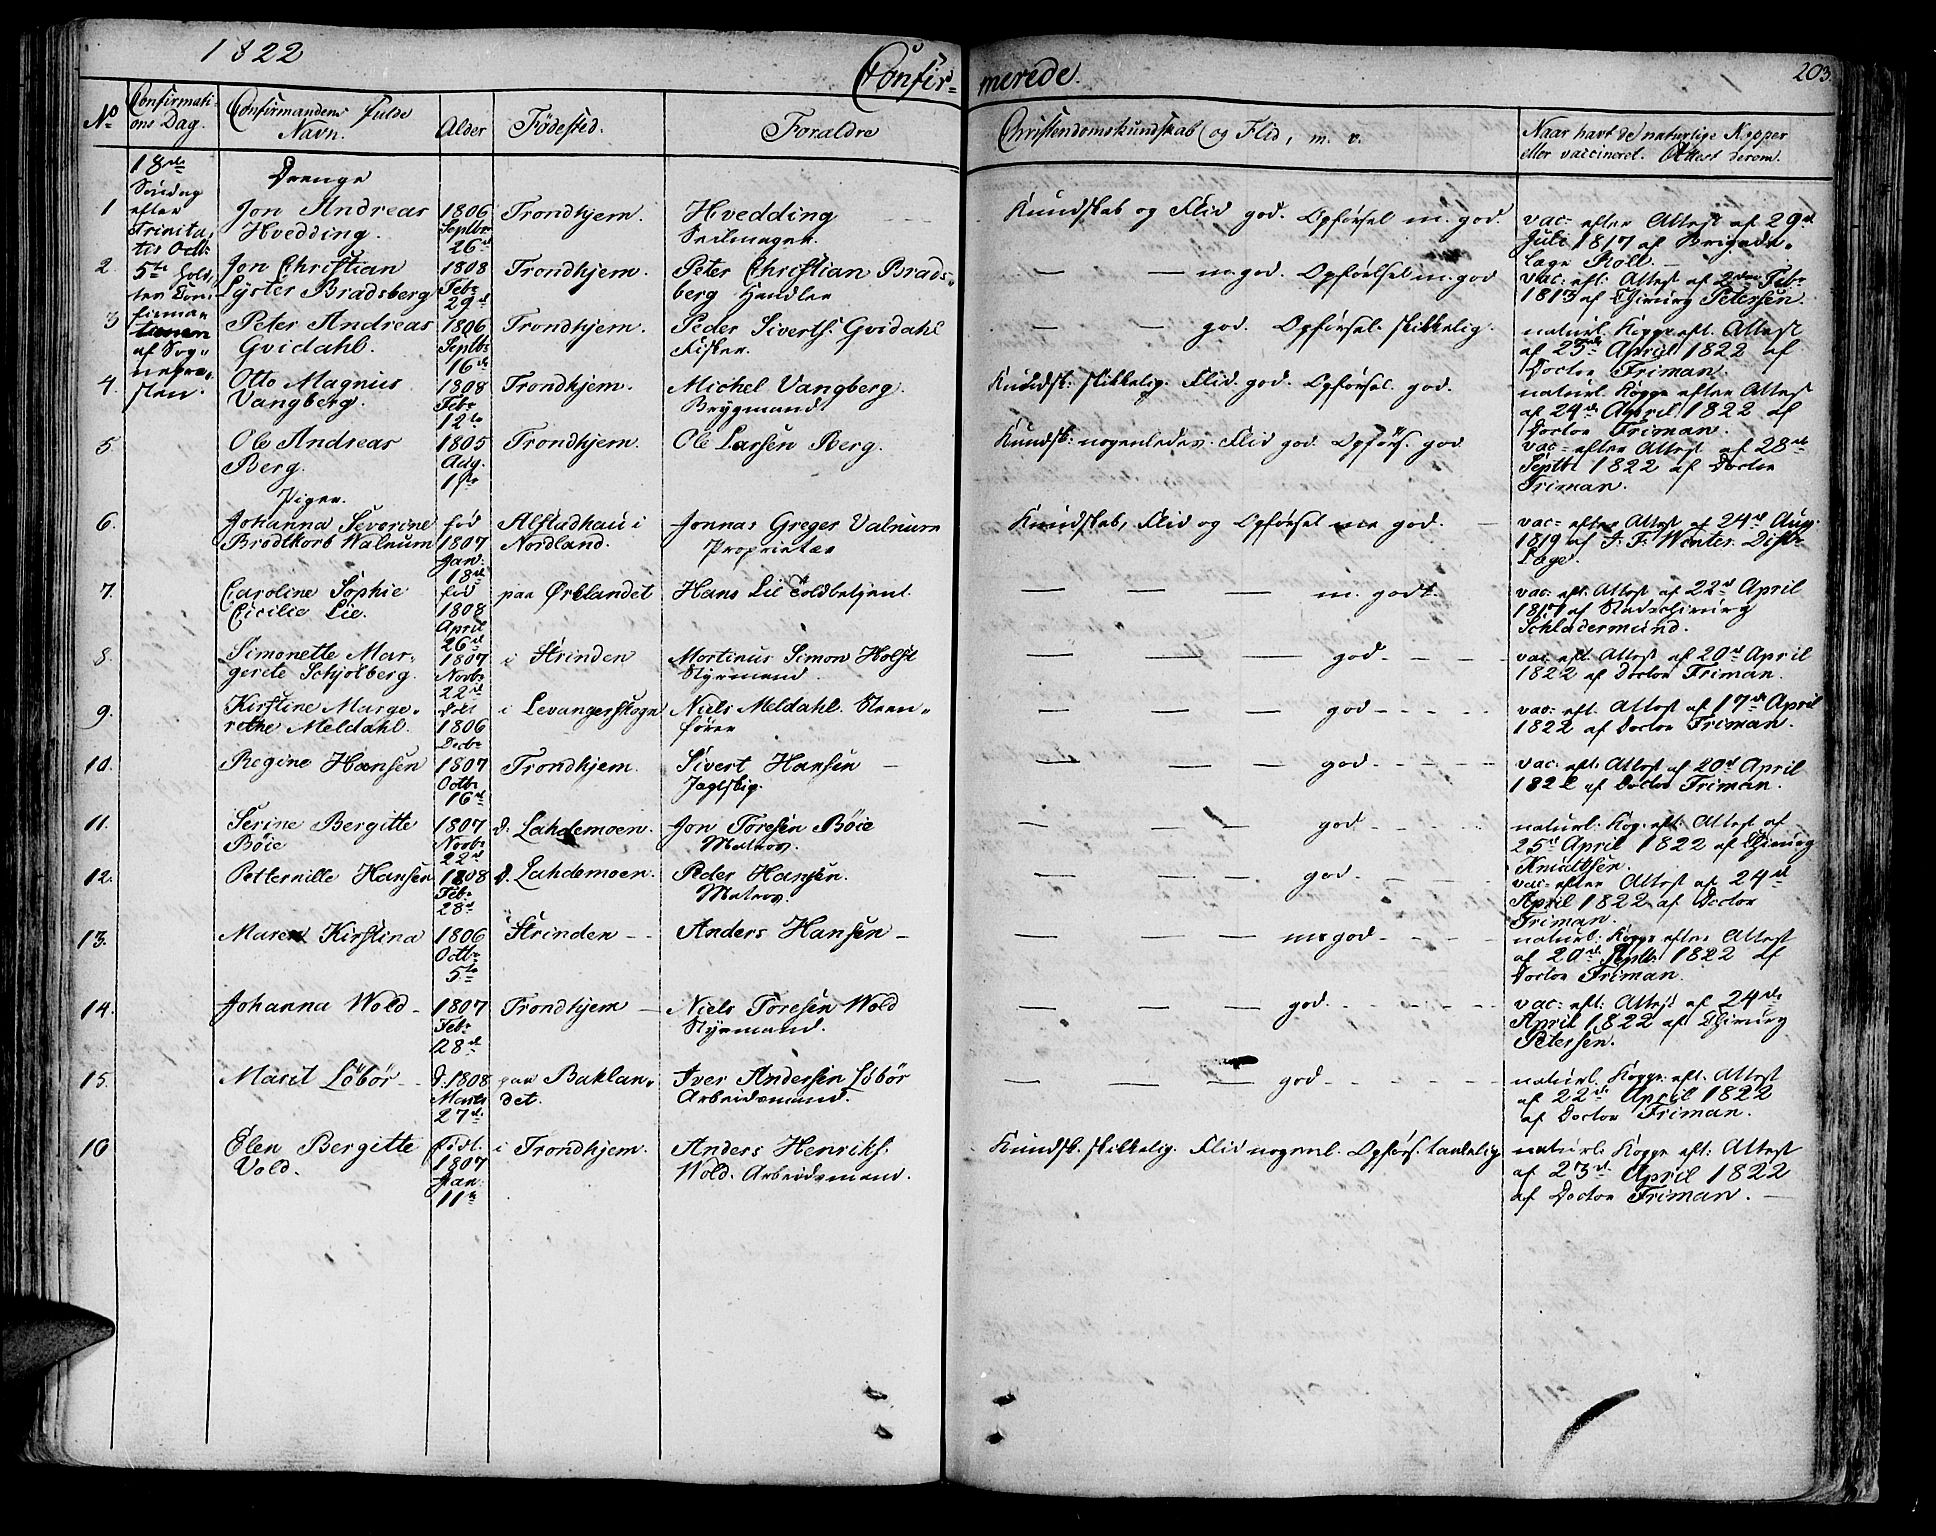 1822
Confir-
merede.
203.
No
Confirmati-
ons Dag.
Confirmandens Fulde
Navn.
Alder
Fødested.
Foraldre
Christendomskundskab og Flid, m. v.
Naar havt de naturlige Kopper
eller vaccineret. Attest derom.
18de
Søndag
efter
Trinita-
tis Octb:
Drenge
1
Jon Andreas
Hvedding.
1806
Septbr
26de
Trondhjem.
Hvedding
Seilmager.
Kundskab og Flid god. Opførsel m. god.
vac: efter Attest af 29de
Juli 1817 af Brigade-
læge Roll.
2.
Jon Christian
Lyster Bradsberg
1808
Febr
29de
Trondhjem.
Peter Christian Brads-
berg Handler
— — m. god. Opførsel m. god
vac: eft: Attest af 2den Febr
1813 af Chirurg Petersen.
3
Peter Andreas
Gvidahl.
1806
Septbr
16de
Trondhjem.
Peder Sivertss. Gvidahl
Fisker.
— — god. Opførsel skikkelig.
naturl. Koppr eft. Attest
af 23de April 1822 af
Doctor Friman.
4.
Otto Magnus
Vangberg.
1808
Febr
12te
Trondhjem.
Michel Vangberg
Brygmand
Kundsk: skikkelig. Flid god. Opførsel god.
naturl. Koppr efter Attest
af 24de April 1822 af
Doctor Friman.
5.
Ole Andreas
Berg.
1805
Aug.
1ste
Trondhjem.
Ole Larsen Berg.
Kundsk: nogenledes. Flid god. Opførs. god
vac: efter Attest af 28de
Septbr 1822 af Doctor
Friman.
Piger.
6.
Johanna Severine
Brodtkorb Walnum
fød
1807
Jan:
18de
Alstadhau i
Nordland.
Jonnas Greger Valnum
Proprietær
Kundskab, Flid og Opførsel me god.
vac: efter Attest af 24de Aug:
1819 af J: F: Winter Distr:
Læge.
7.
Caroline Sophie
Cicilie Lie.
fød
1808
April
26de
paa Ørelandet
Hans Lie Toldbetjent.
— — — m. godt.
vac: eft. Attest af 22de April
1817 af Stadschirurg
Schladermund.
8.
Simonette Mar-
grete Schjølberg.
1807
Novbr
22de
i Strinden
Mortinus Simon Holst
Styrmand.
— — — god
vac: eft. Attest af 20de April
1822 af Doctor Friman.
9.
Kirstine Marge-
rethe Meldahl.
1806
Decbr
i Levangerskogn
Niels Meldahl. Steen-
fører
— — — god
vac: eft. Attest af 17de April
1822 af Doctor Friman.
10.
Regine Hansen
1807
Octbr
16de
Trondhjem.
Sivert Hansen
— — — god
vac: eft: Attest af 20de April
1822 af Doctor Friman.
11.
Serine Bergitte
Böie
1807
Novbr
22de
Lahdemoen.
Jon Toresen Böie
Matros.
— — — god
naturl: Kop: eft: Attest af
25de April 1822 af Chirurg
Knudtsen.
12.
Petternille Hansen
1808
Febr
28de
Lahdemoen.
Peder Hansen.
Matros.
— — — god
vac: efter Attest af 24de
April 1822 af Doctor
Friman.
13.
Maren Kirstina
1806
Octbr
5te
Strinden
Anders Hansen
— — — me god
naturl: Koppr efter Attest
af 20de Septbr 1822 af
Doctor Friman.
14.
Johanna Wold
1807
Febr
28de
Trondhjem
Niels Toresen Wold
Styrmand.
— — — god
vac: eft: Attest af 24de
April 1822 af Chirurg
Petersen.
15.
Marit Löbör
1808
Marts
27de
paa Baklan-
det.
Iver Andersen Löbör
Arbeidsmand.
— — — god
naturl: Koppr eft: Attest
af 22de April 1822
af Doctor Friman.
16
Elen Bergitte
Vold.
født
1807
Jan.
11te
i Trondhjem.
Anders Henriks:
Wold. Arbeidsmand.
Kundsk. skikkelig. Flid nogenl. Opførs. taalelig
naturl: Koppr eft: Attest
af 23de April 1822
af Doctor Friman.